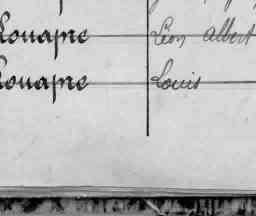 Rouapre Léon Albert
Rouapre Louis